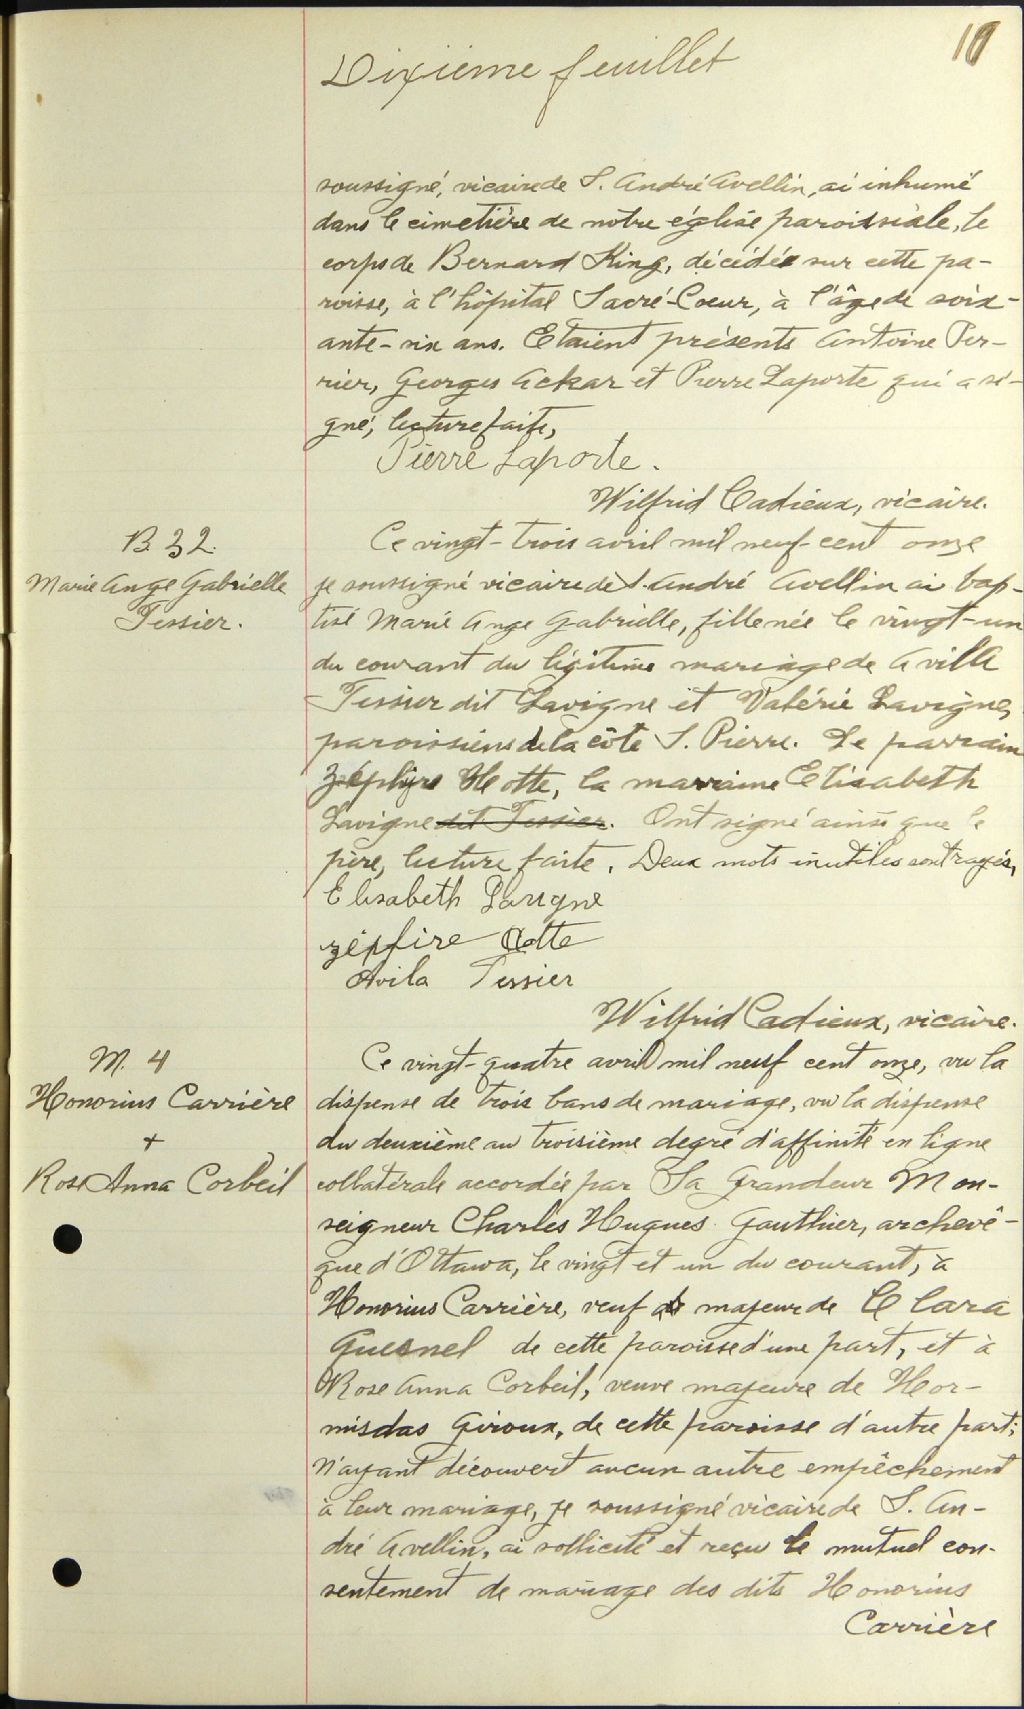 10
Dixième feuillet
soussigné, vicaire de S. André Avellin, ai inhumé
dans le cimetière de notre église paroissiale, le
corps de Bernard King, décédé sur cette pa-
roisse, à l'hôpital Sacré-Coeur, à l'âge de soix-
ante-six ans. Etaient présents Antoine Per-
rier, Georges Ackar et Pierre Laporte qui a si-
gné, lecture faite,
Pierre Laporte.
Wilfrid Cadieux, vicaire.
B. 32.
Marie Ange Gabrielle
Tessier.
Ce vingt-trois avril mil neuf-cent onze
je soussigné vicaire de S. André Avellin ai bap-
tisé Marie Ange Gabrielle, fille née le vingt-un
du courant du légitime mariage de Avilla
Tessier dit Lavigne et Valérie Lavigne,
paroissiens de la côte S. Pierre. Le parrain
Zéphire Hotte, la marraine Elisabeth
Lavigne dit Tessier. Ont signé ainsi que le
père, lecture faite. Deux mots inutiles sont rayés,
Elisabeth Lavigne
zépfire Otte
Avila Tessier
Wilfrid Cadieux, vicaire.
M. 4
Honorius Carrière
+
Rose Anna Corbeil
Ce vingt-quatre avril mil neuf cent onze, vu la
dispense de trois bans de mariage, vu la dispense
du deuxième au troisième degré d'affinité en ligne
collatérale accordée par Sa Grandeur Mon-
seigneur Charles Hugues Gauthier, archevê-
que d'Ottawa, le vingt et un du courant, à
Honorius Carrière, veuf majeur de Clara
Guesnel de cette paroisse d'une part, et à
Rose Anna Corbeil, veuve majeure de Hor-
misdas Giroux, de cette paroisse d'autre part;
N'ayant découvert aucun autre empêchement
à leur mariage, je soussigné vicaire de S. An-
dré Avellin, ai sollicité et reçu le mutuel con-
sentement de mariage des dits Honorius
Carrière